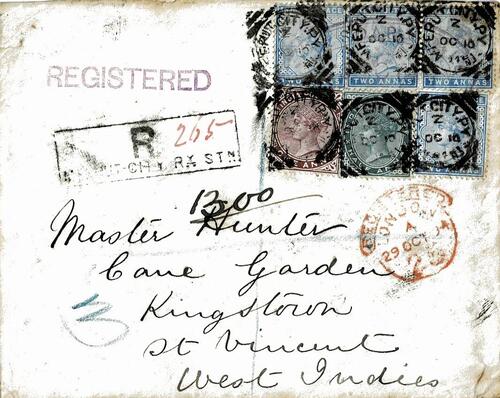 REGISTERED
CITY.PY
Z
OC 16
TWO ANNAS
TWO ANNAS
TWO ANNAS
R 265
CITY RY STN
REGISTERED
LONDON
A
29 OCT
1300
Master Hunter
Cane Garden
Kingstown
St Vincent
West Indies